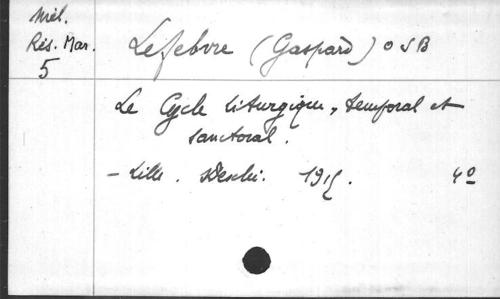 Mél.
Rés. Mar.
5
Lefebvre (Gaspard) OSB
Le Cycle liturgique, temporal et
sanctoral.
- Lille. Desclée. 4º